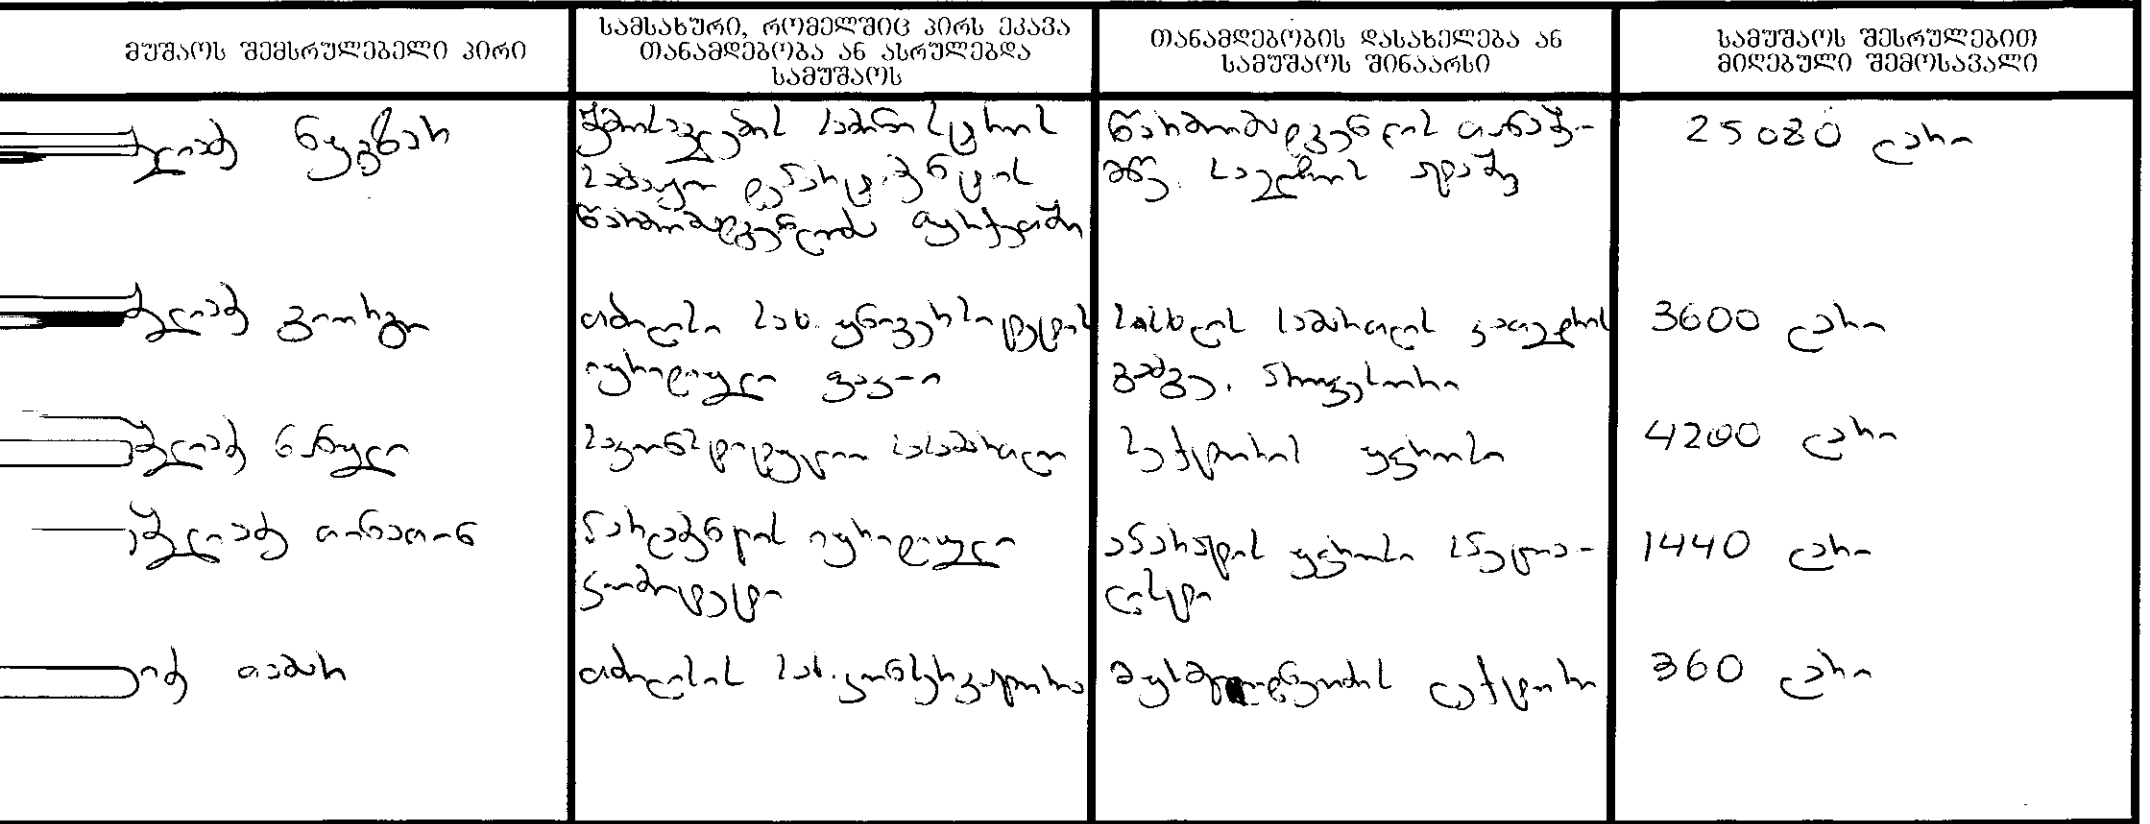 მუშაოს შემსრულებელი პირი
სამსახური, რომელშიც პირს ეკავა
თანამდებობა ან ასრულებდა
სამუშაოს
თანამდებობის დასახელება ან
სამუშაოს შინაარსი
სამუშაოს შესრულებით
მიღებული შემოსავალი
ნუგზარ
შემოსავლების სამინისტროს
საბაჟო დეპარტამენტის
წარმომადგენლობა თურქეთში
წარმომადგენლის თანაშ-
მწე. საველის
25080 ლარი
გიორგი
თბილისი სახ. უნივერსიტეტის
იურიდიული ფაკ-ი
სისხლის სამართლის კათედრის
გამგე. პროფესორი
3600 ლარი
ნანული
საკონსტიტუციო სასამართლო
სექტორის უფროსი
4200 ლარი
თინათინ
პარლამენტის იურიდიული
კომიტეტი
აპარატის უფროსი სპეცია-
ლისტი
1440 ლარი
თამარ
თბილისის სახ. კონსერვატორია
მუსმცოდნეობის ლექტორი
360 ლარი